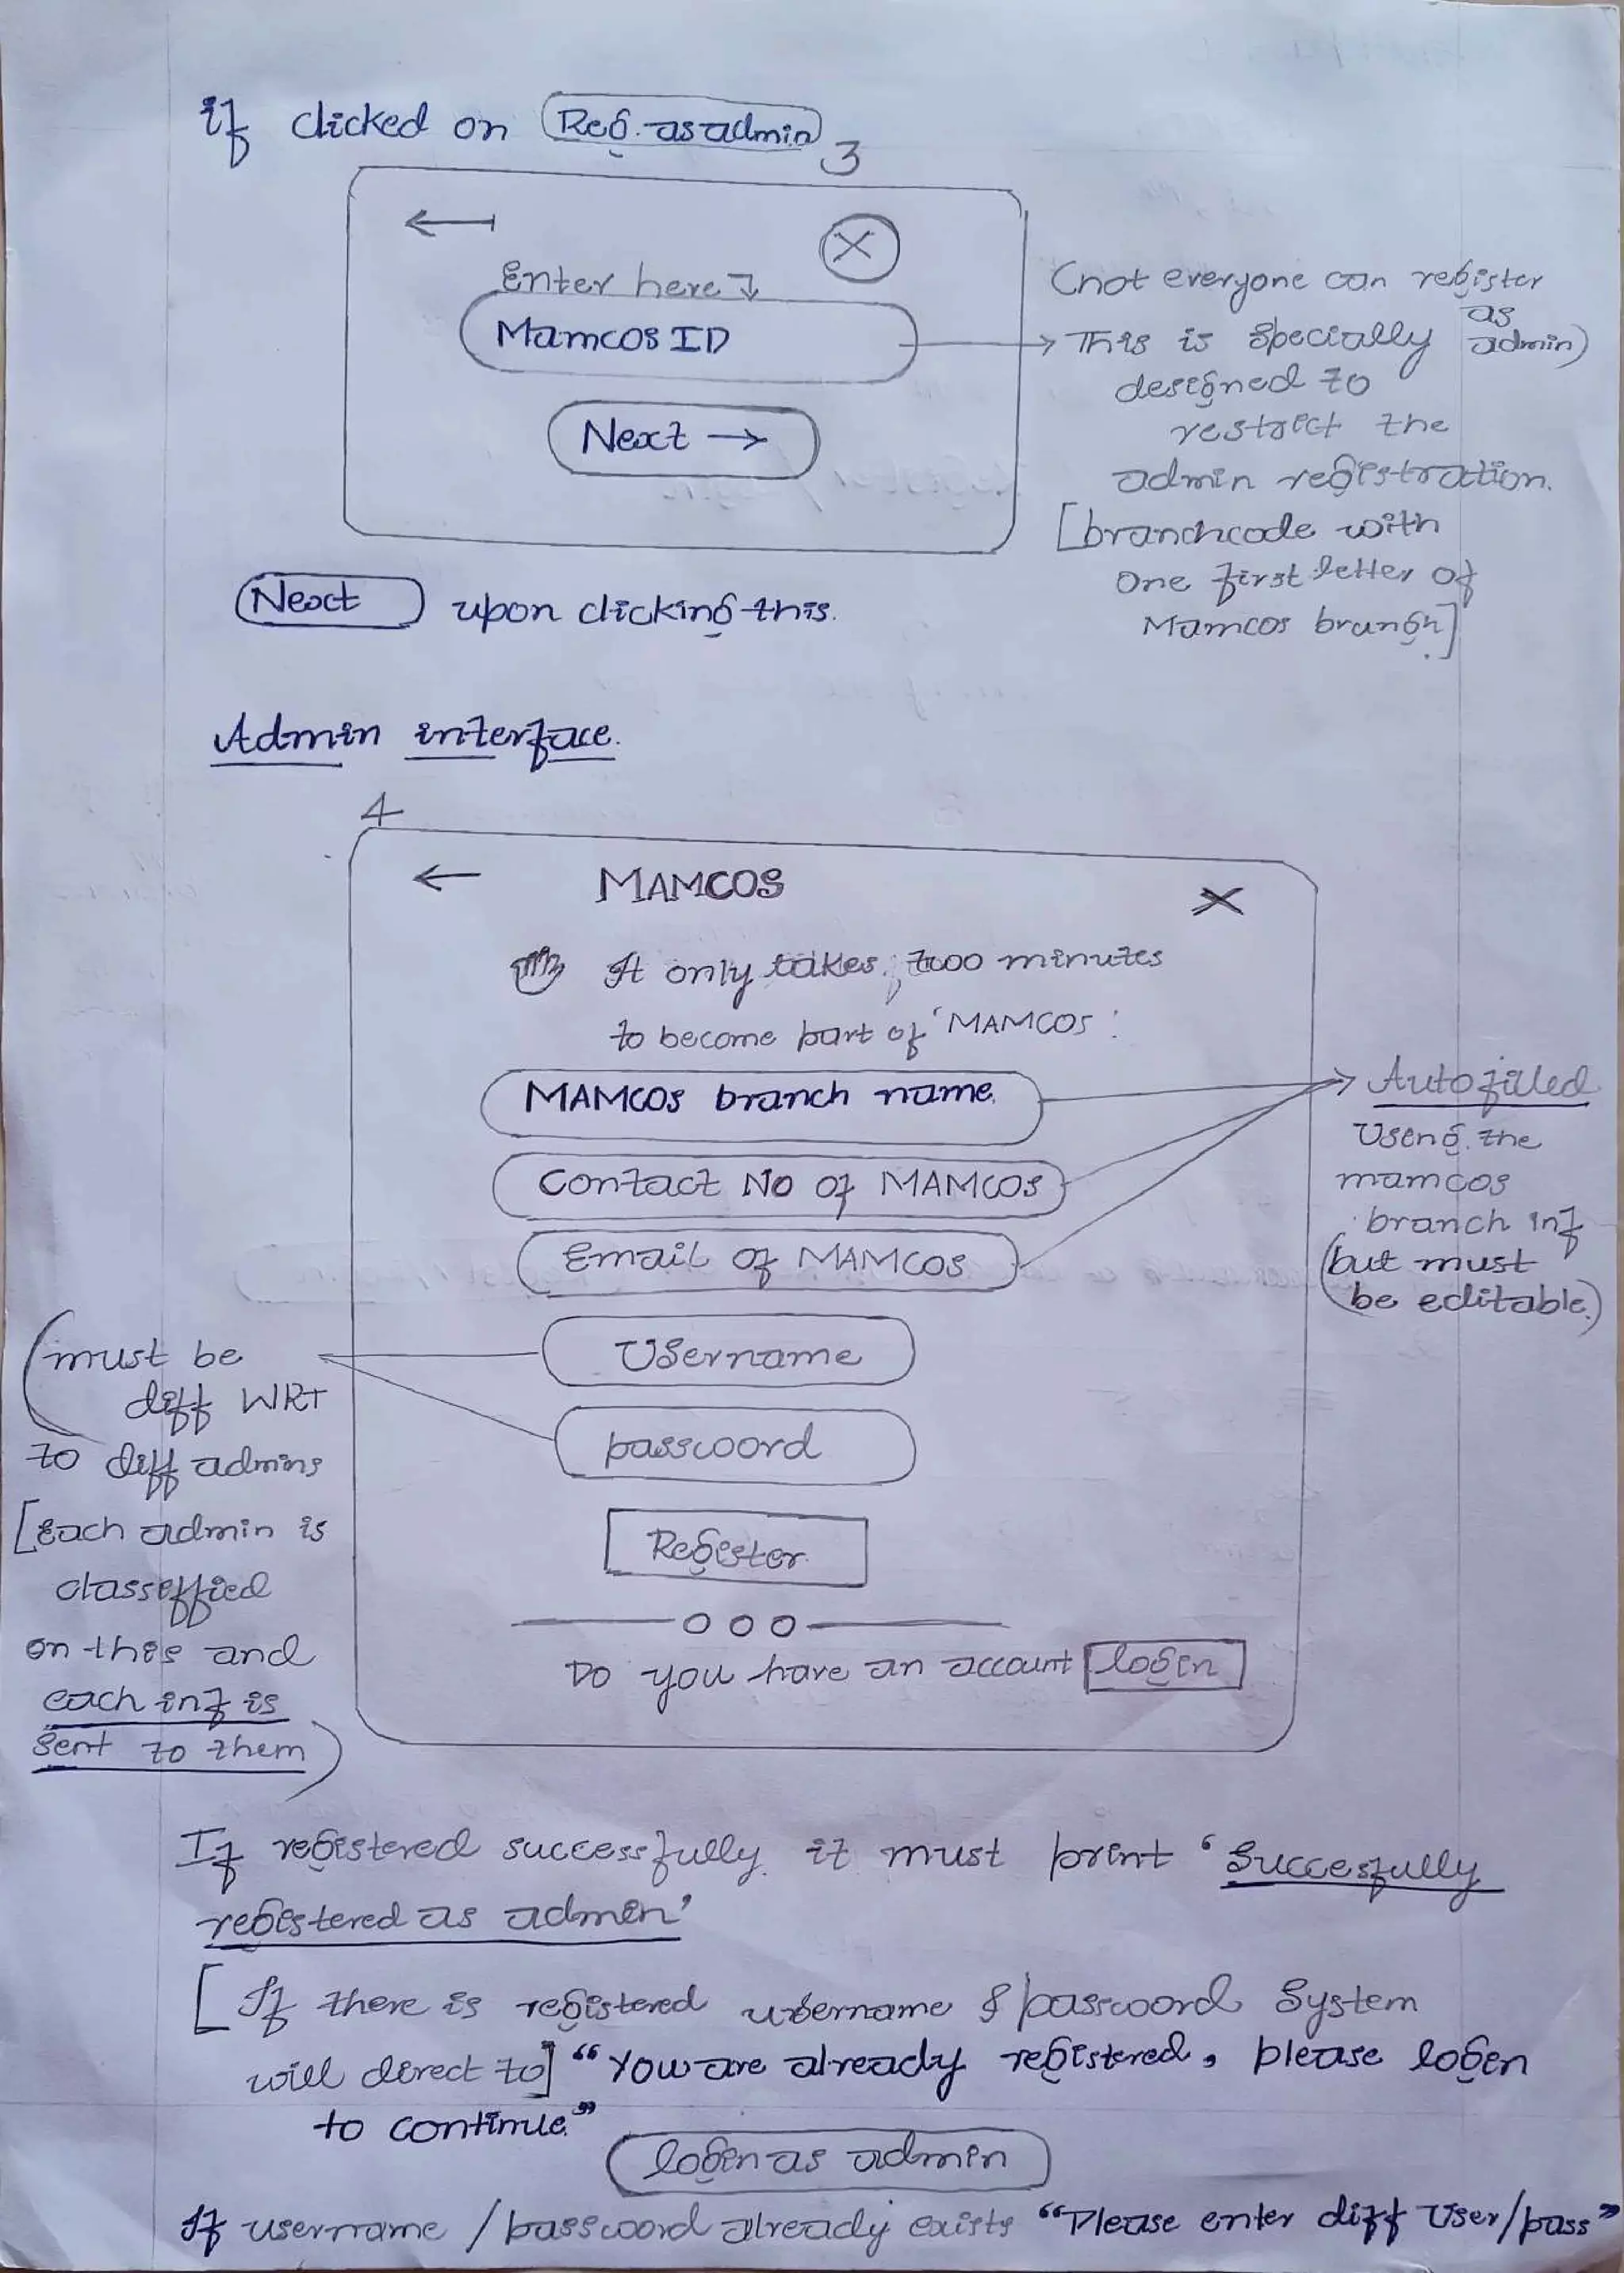 if clicked on Reg. as admin
3
←
X
Enter here
Mamcos ID
Next →
(not everyone can register
as
admin)
→ This is specially
designed to
restrict the
admin registration.
[branchcode with
one first letter of
Mamcos brangh]
Next upon clicking this.
Admin interface.
4
← MAMCOS X
It only takes two minutes
to become part of 'MAMCOS'
MAMCOS branch name.
Contact No of MAMCOS
Email of MAMCOS
→ Autofilled
Using the
mamcos
branch inf
(but must
be editable.)
Username
password
(must be
diff WRT
to diff admins
[Each admin is
classeffied
on this and
each inf is
sent to them)
Register
ooo
Do you have an account login
If registered successfully it must print 'Succesfully
registered as admin'
[If there is registered username & password System
will direct to] "You are already registered, please login
to continue."
login as admin
If username / password already exists "Please enter diff User/pass"